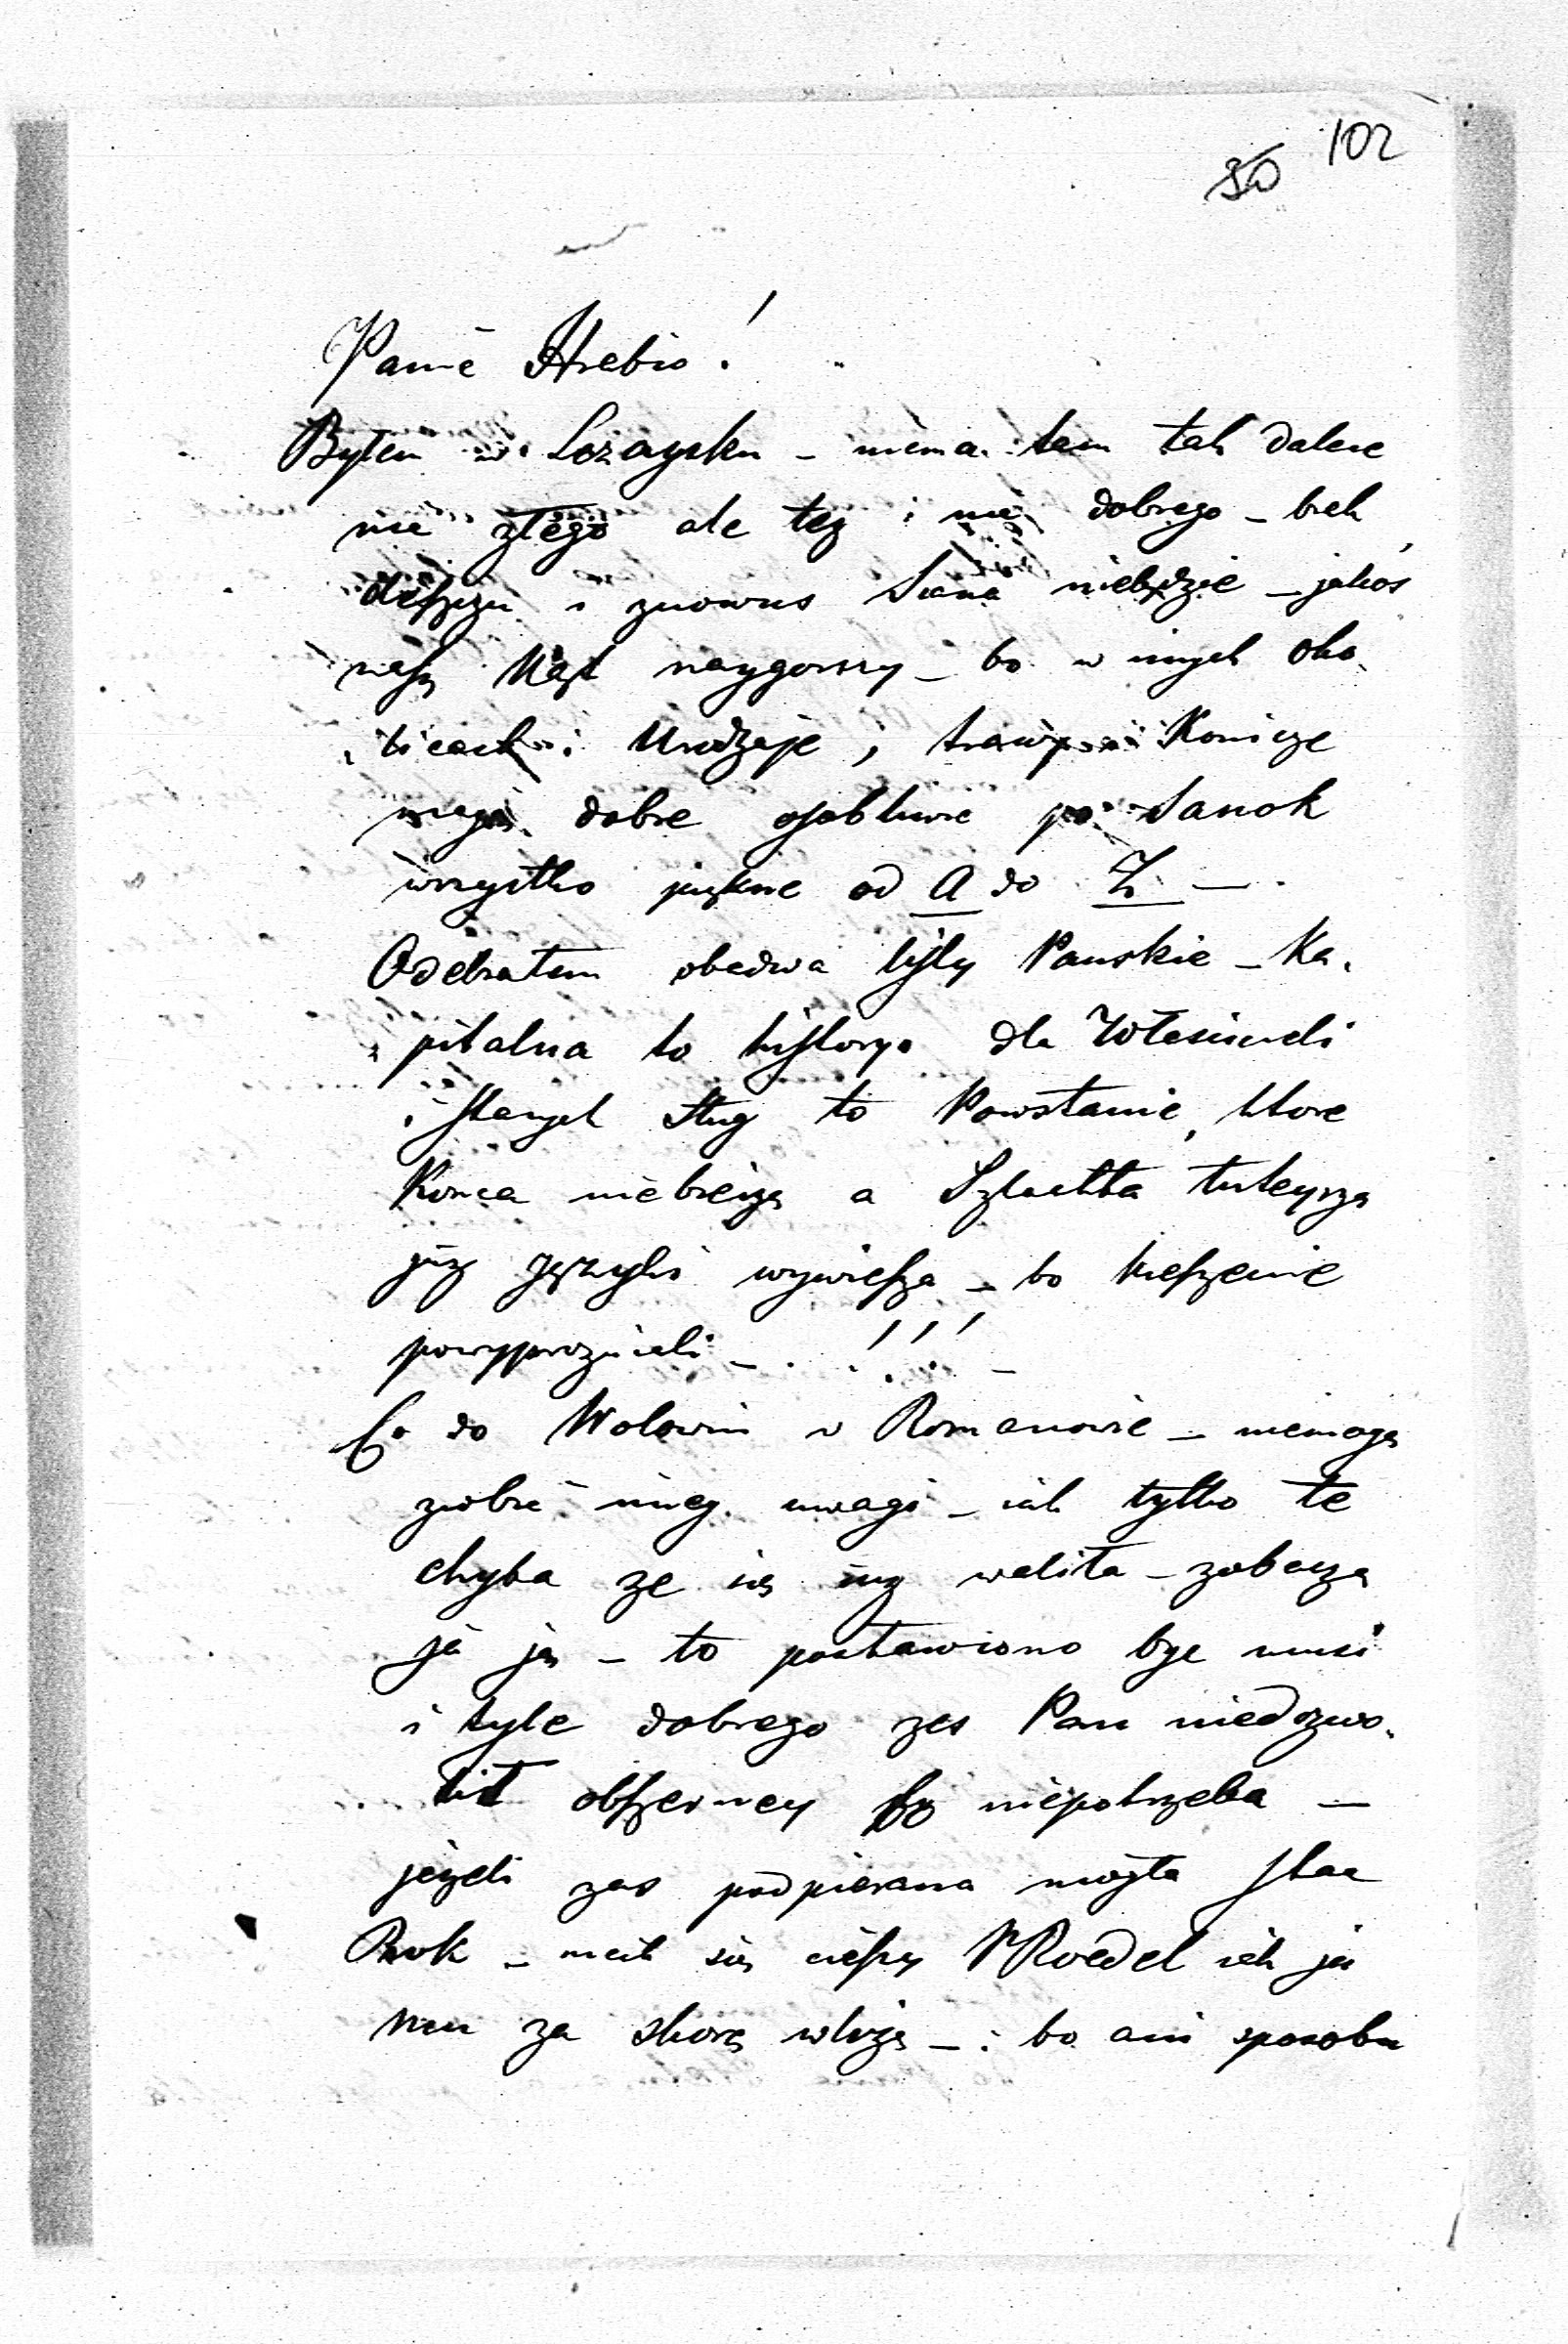 102
50
Panie Hrabio!
Byłem w Lezaysku – niema tam tak dalece
nic złego ale tez i nic dobrego – brak
deszczu i znowus Siana niebędzie – jakoś
nasz Kąt naygorszy – bo w innych oko-
licach i Urodzaje, i trawy i Konicze
mają dobre osobliwie po Sanok
wszystko piękne od A do Z –
Odebrałem obadwa listy Panskie – Ka-
pitalna to history dla Właścicieli
i starych sług to Powstanie, ktore
Konca niebierze a Szlachta tuteysza
juz języki wywiesza – bo kieszenie
powyprozniali – !!! –
Co do Wolowni w Romanowie – niemogę
zrobić inney uwagi – jak tylko te
chyba ze się juz waliła – zobaczę
ja ją – to postawiono byc musi
i tyle dobrego zes Pan niedozwo-
lił obszerney bo niepotrzeba –
jezeli zas podpierana mogła stac
Rok – niech się cieszy Roedel jak ja
mu za skorę wlezę – bo ani sposobu